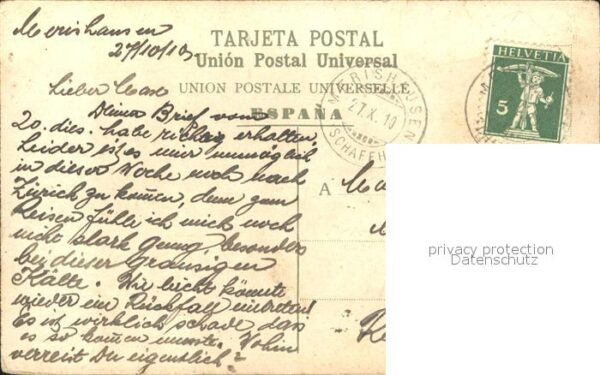 Merishausen
27/10/10
TARJETA POSTAL
Unión Postal Universal
UNION POSTALE UNIVERSELLE
ESPAÑA
HELVETIA
5
MERISHAUSEN
27.X.10
SCHAFFH
Lieber Max
Deinen Brief vom
20. dies. habe richtig erhalten,
Leider ist es mir unmöglich
in dieser Woche noch nach
Zürich zu kommen, denn zum
Reisen fühle ich mich noch
nicht stark genug, besonders
bei dieser grausigen
Kälte. Wie leicht könnte
wieder ein Rückfall eintreten!
Es ist wirklich schade, das
es so kommen musste. Wohin
verreist Du eigentlich?
A
privacy protection
Datenschutz